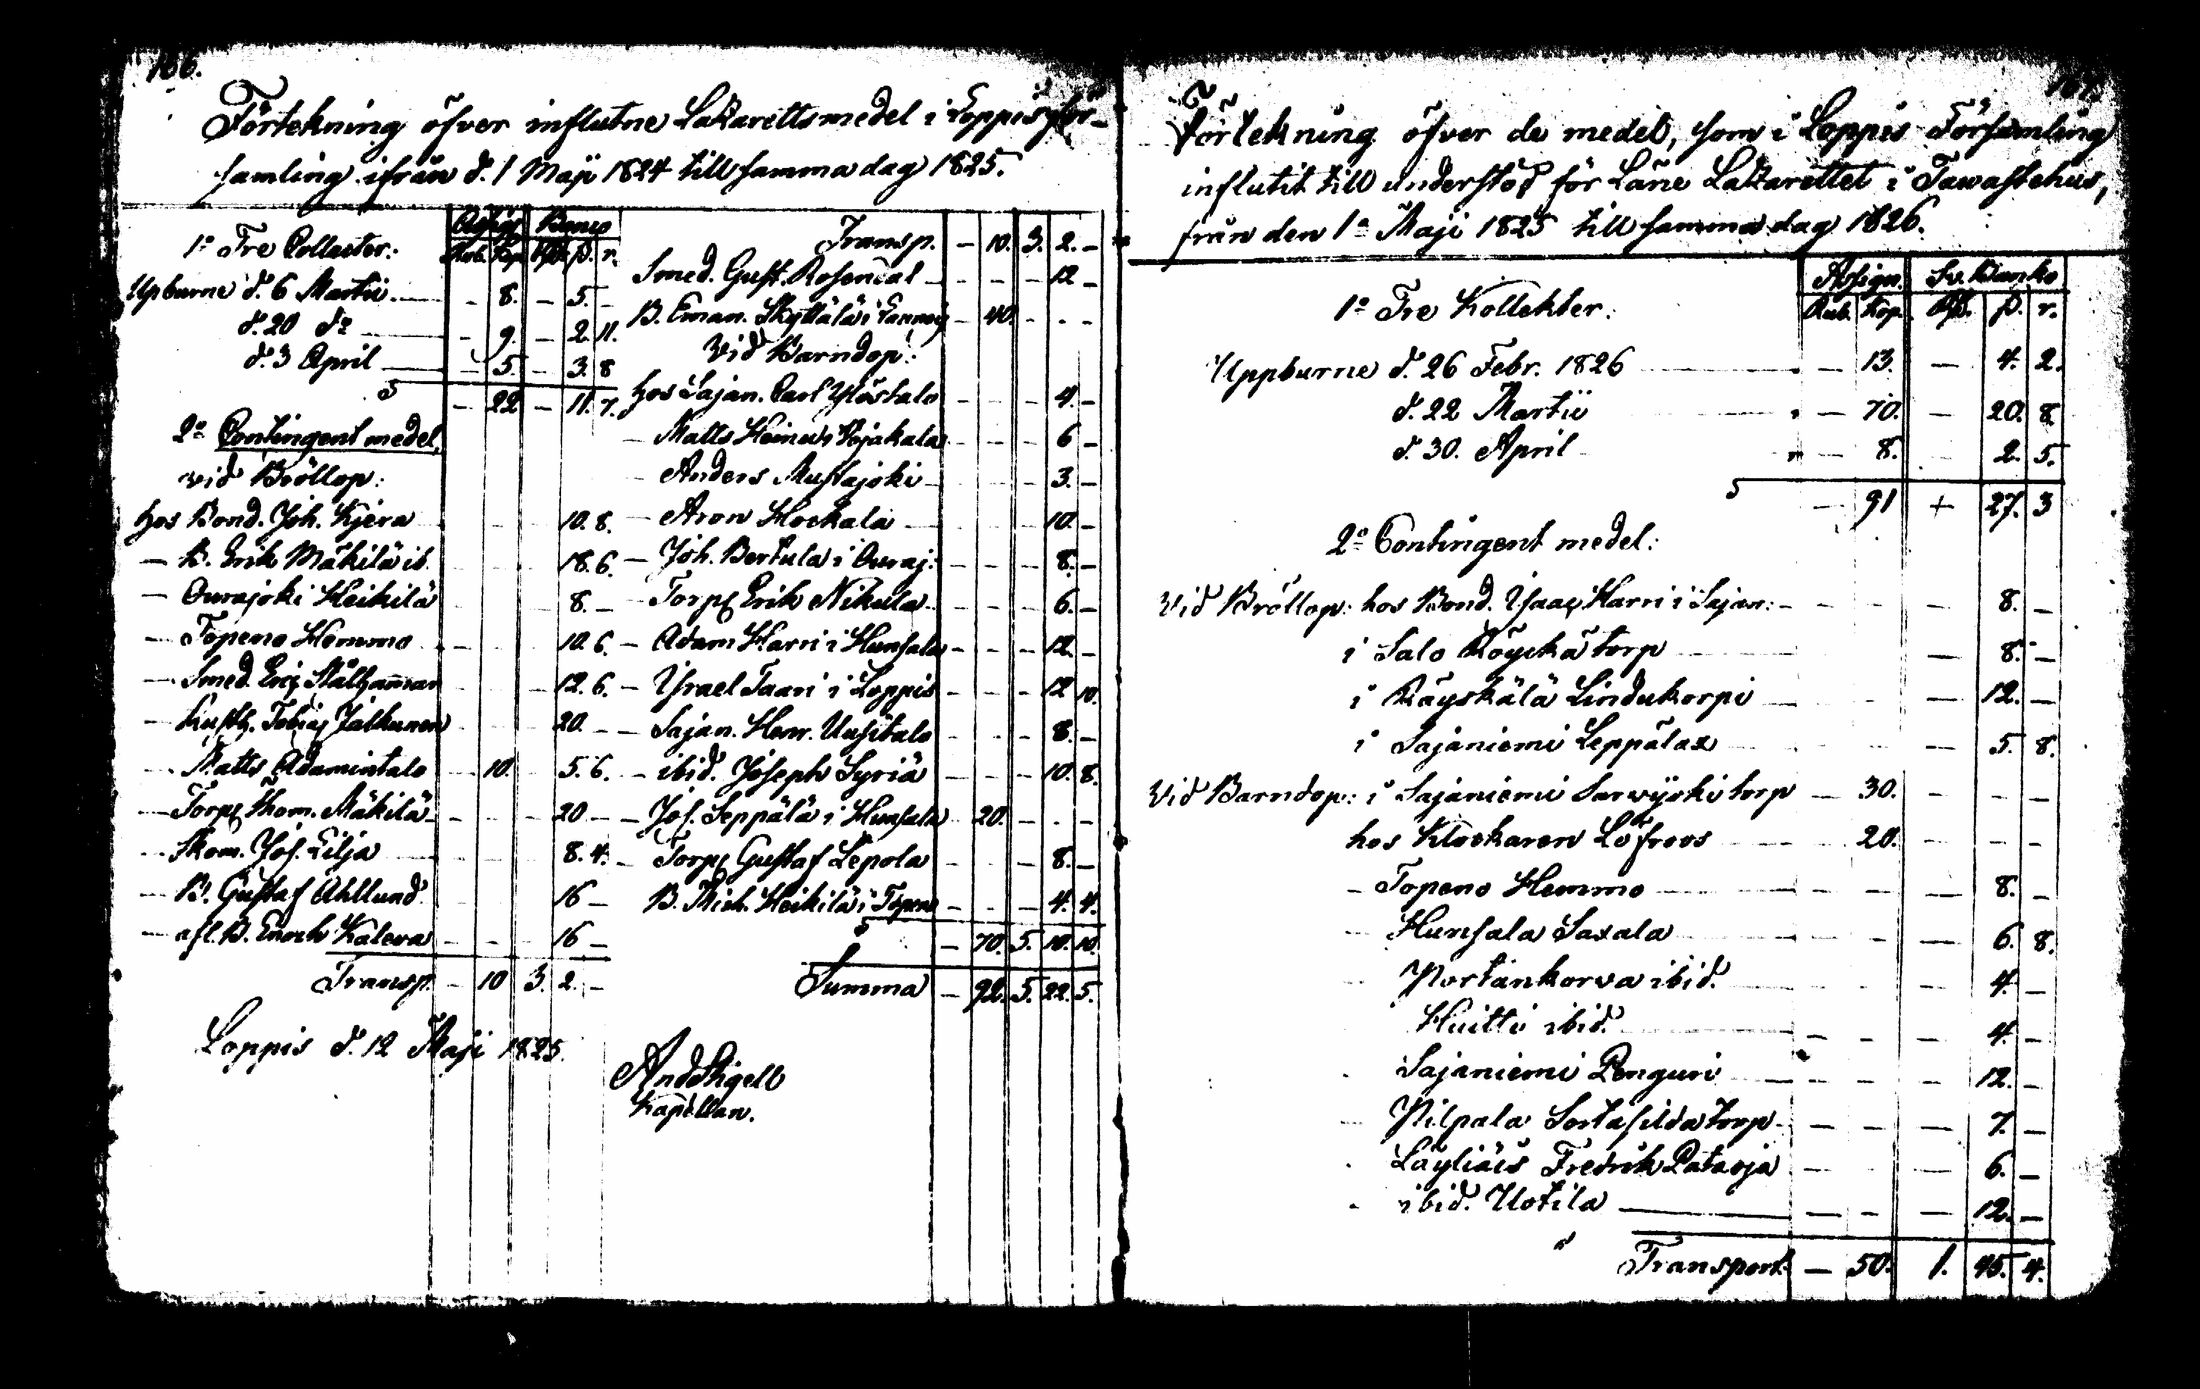 166.
Förtekning öfver influtne Lazarettsmedel i Loppis För-
samling ifrån d. 1 Maji 1824 till samma dag 1825.
Assign Banco
1o Tre Collecter: Rub. Kop. Rd. s. r.
Upburne d. 6 Martii — - 8. - 5. -
d. 20 do — - 9. - 2. 11.
d. 3 April — - 5. - 3. 8
S - 22 - 11. 7.
2o Contingent medel,
vid Bröllop:
hos Bond. Joh. Kjera 10. 8.
— B. Erik Mäkilä ib. 18. 6.
— Ourajoki Heikilä 8. -
— Topeno Hemmo 10. 6.
— Smed. Eric Stålhammar 12. 6.
— Tobias Jalkunen 20. -
— Matts Adamintalo - 10. 5. 6.
— Torp. Thom. Mäkilä 20 -
— Skom. Jos. Lilja 8. 4.
— B. Gustaf Ahllund 16 -
— afl. B. Enoch Kaleva 16 -
Transp. - 10 3. 2. -
Loppis d. 12 Maji 1825.
Transp. - 10. 3. 2. -
Smed. Gust. Rosendal - - - 12 -
B. Eman. Skyttälä i - 40. - - -
Vid Barndop:
hos Sajan. Carl Ylöstalo - - - 4. -
— Matts Heinus Kojakala - - - 6 -
— Anders Mustajoki - - - 3. -
— Aron Hockala - - - 10. -
— Joh. Bertula i Ouraj: - - - 8. -
— Torp. Erik Nikula - - - 6. -
— Adam Harri i Hunsala - - - 12. -
— Israel Taari i Loppis - - - 12 10.
— Sajan. Henr. Uusitalo - - - 8. -
— ibid. Joseph Syriä - - - 10. 8.
— Jos. Seppälä i Hunsala 20. - - -
— Torp. Gustaf Lepola - - - 8. -
B. Mich. Heikilä i Topeno - - - 4. 4.
S - 70. 5. 10. 10.
Summa - 92. 5. 22. 5.
And Stigell
Kapellan.
167.
Förtekning öfver de medel, som i Loppis Församling
influtit till understöd för Läne Lazarettet i Tawastehus,
från den 1a Maji 1825 till samma dag 1826.
Assign. Sv. Banko
1o Tre Kollekter: Rub. Kop. Rd. s. r.
Uppburne d. 26 Febr. 1826 — 13. — 4. 2.
d. 22 Martii — 70. — 20. 8.
d. 30. April — 8. 2. 5.
S — 91 + 27. 3
2o Contingent medel:
Vid Bröllop: hos Bond. Isaac Harri i Sajan: - - — 8. —
i Salo Röyckä torp — 8. —
i Räyskälä Lindukorpi — 12. —
i Sajaniemi Leppälax — 5. 8.
Vid Barndop: i Sajaniemi Sarvijoki torp — 30. — - -
hos Klockaren Löfroos — 20. - - -
— Topeno Hemmo - - — 8. -
— Hunsala Saxala - - — 6. 8.
Portankorva ibid. — 4. -
Huitti ibid. - - — 4. -
Sajaniemi Penguri - - — 12. -
Pilpala Sortasilda torp - - — 7. —
Läyliäis Fredrik Pataoja - - — 6. -
ibid. Uotila — - — 12. —
Transport. — 50. 1. 45. 4.